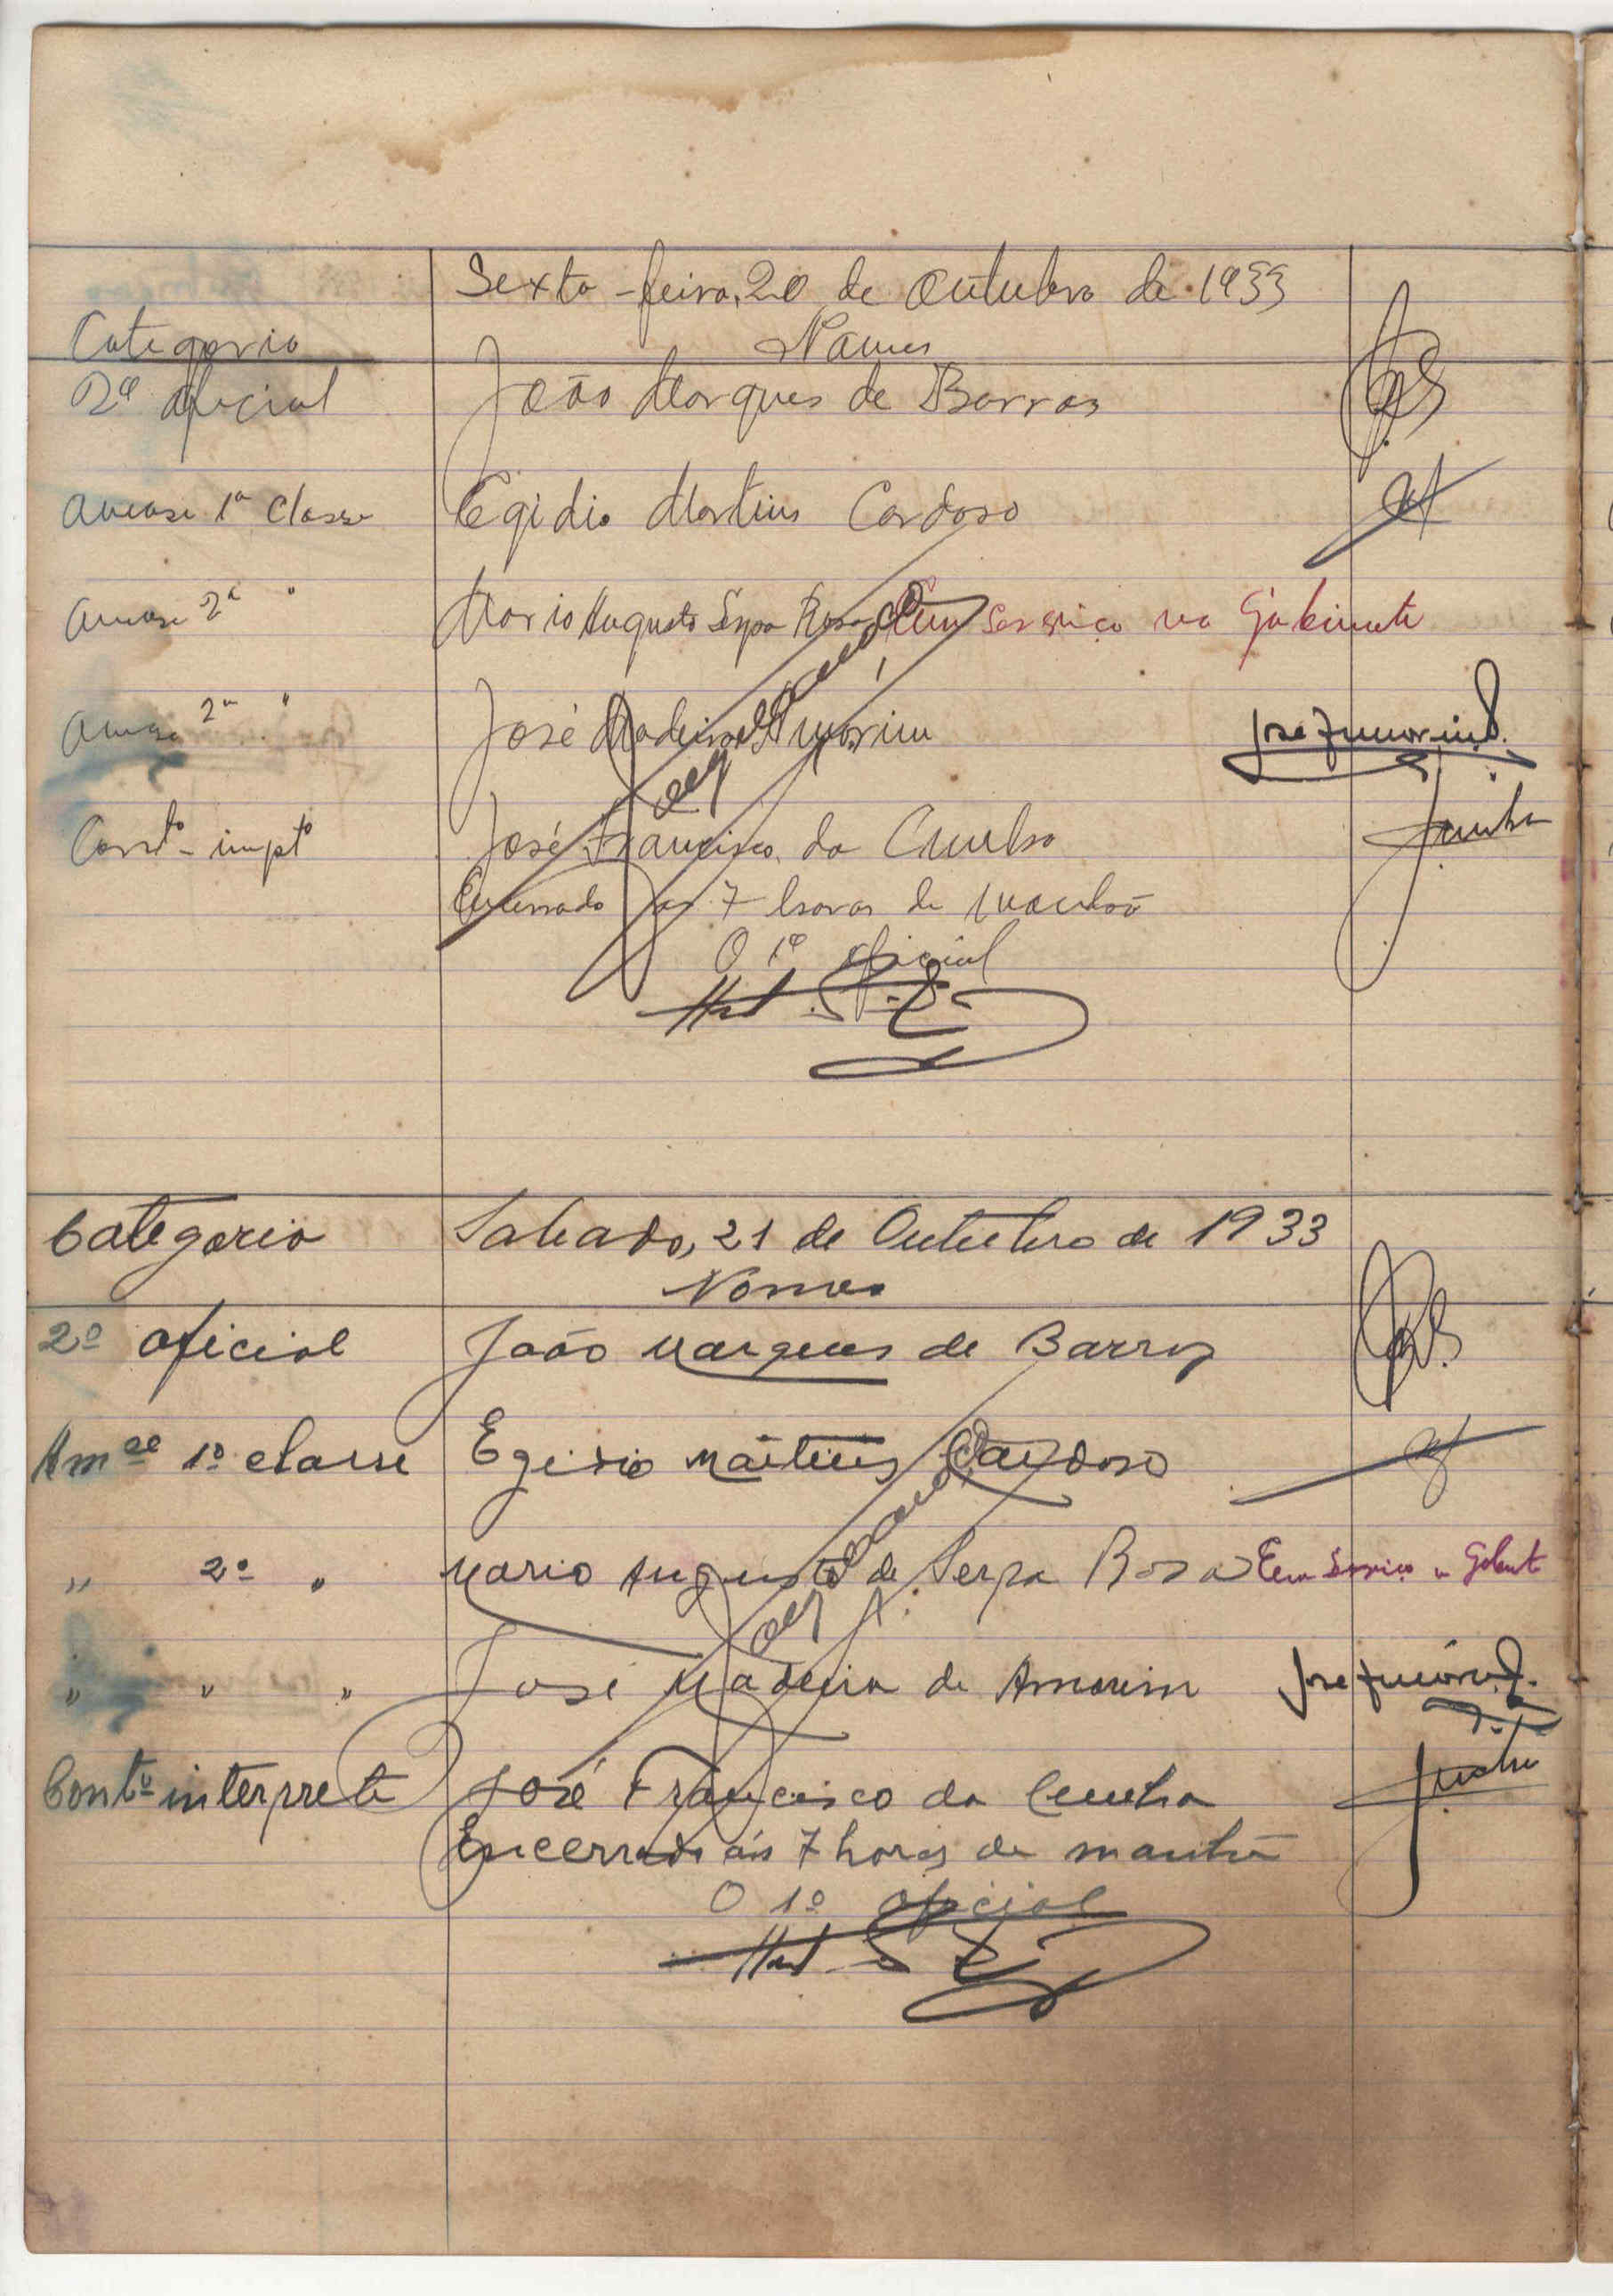 Sexta-feira, 20 de Outubro de 1933
Categoria Nomes
2º oficial João Marques de Barros
1ª Classe Egidio Martins Cardoso
2ª " Mario Augusto Serpa Rosa Em serviço no Gabinete
2ª " José Madeira Amorim José Amorim
José Francisco da Cunha Cunha
Encerrado ás 7 horas da manhã
O 1º oficial
Categoria Sabado, 21 de Outubro de 1933
Nomes
2º oficial João Marques de Barros
Amse 1º classe Egidio Martins Cardoso
" 2º " Mario Augusto de Serpa Rosa Em Serviço
" " " José Madeira de Amorim José Amorim
Contº interprete José Francisco da Cunha Cunha
Encerrado ás 7 horas da manhã
O 1º oficial